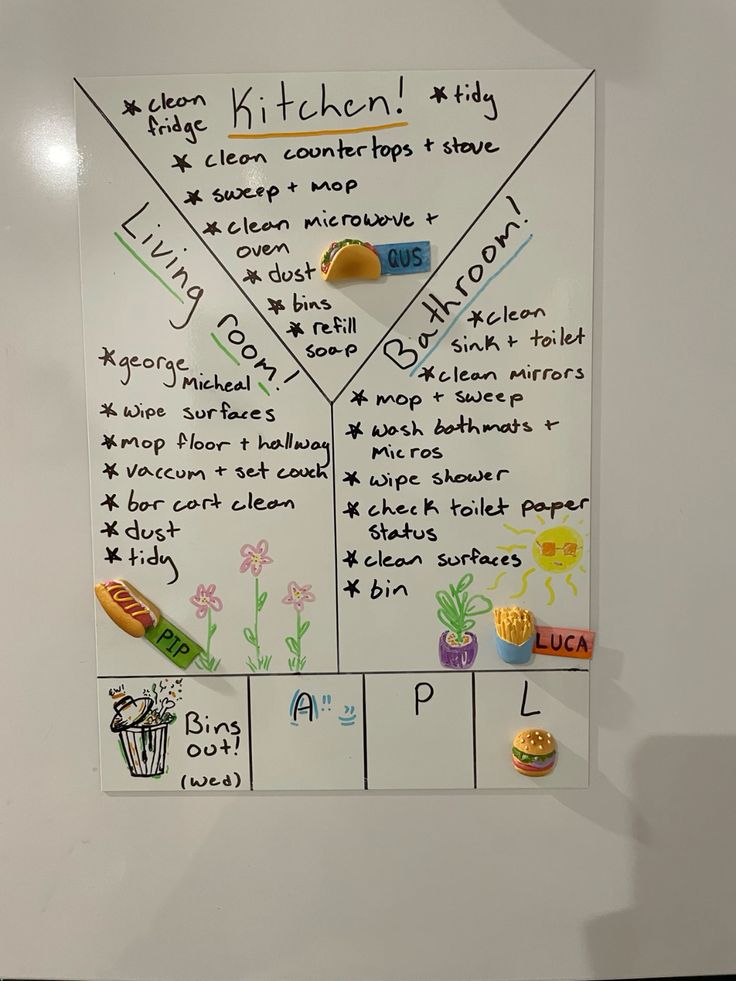 Kitchen!
* clean
fridge
* tidy
* clean countertops + stove
* sweep + mop
* clean microwave +
oven
* dust
* bins
* refill
soap
QUS
Living room!
* george
Micheal
* wipe surfaces
* mop floor + hallway
* vaccum + set couch
* bar cart clean
* dust
* tidy
PIP
Bathroom!
* clean
sink + toilet
* clean mirrors
* mop + sweep
* wash bathmats +
micros
* wipe shower
* check toilet paper
status
* clean surfaces
* bin
LUCA
EW!
Bins
out!
(wed)
A
P
L